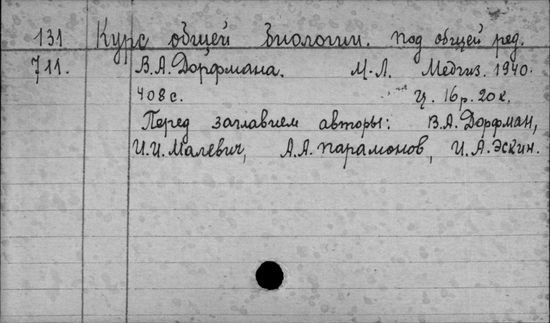 131 Курс общей биологии. Под общей ред.
711. В.А. Дорфмана. М.-Л. Медгиз. 1940.
408 с. Ц. 16 р. 20 к.
Перед заглавием авторы: В.А. Дорфман,
И.И. Малевич, А.А. Парамонов, И.А. Эскин.